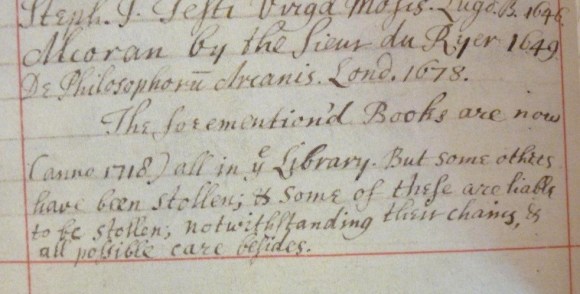 Steph. J. Testi Virga Mosis. Lugd. B. 1646
Alcoran by the Sieur du Ryer 1649
De Philosophorū Arcanis. Lond. 1678.
The forementiond Books are now
(anno 1718) all in yᵉ Library. But some others
have been stollen; & some of these are liable
to be stollen, notwithstanding their chains, &
all possible care besides.